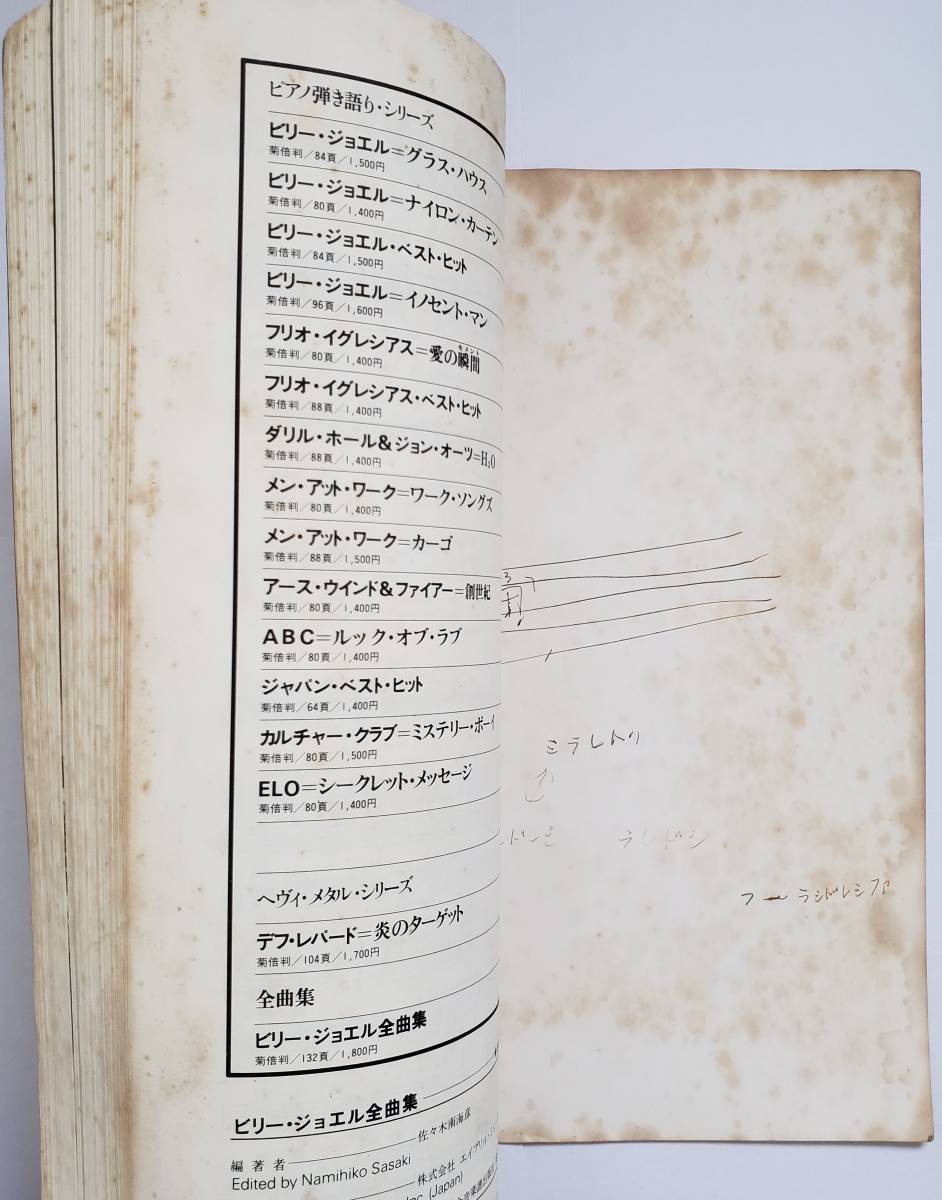 ピアノ弾き語り・シリーズ
ビリー・ジョエル=グラス・ハウス
菊倍判/84頁/1,500円
ビリー・ジョエル=ナイロン・カーテン
菊倍判/80頁/1,400円
ビリー・ジョエル・ベスト・ヒット
菊倍判/84頁/1,500円
ビリー・ジョエル=イノセント・マン
菊倍判/96頁/1,600円
モメント
フリオ・イグレシアス=愛の瞬間
菊倍判/80頁/1,400円
フリオ・イグレシアス・ベスト・ヒット
菊倍判/88頁/1,400円
ダリル・ホール&ジョン・オーツ=H₂O
菊倍判/88頁/1,400円
メン・アット・ワーク=ワーク・ソングズ
菊倍判/80頁/1,400円
メン・アット・ワーク=カーゴ
菊倍判/88頁/1,500円
アース・ウインド&ファイアー=創世紀
菊倍判/80頁/1,400円
ABC=ルック・オブ・ラブ
菊倍判/80頁/1,400円
ジャパン・ベスト・ヒット
菊倍判/64頁/1,400円
カルチャー・クラブ=ミステリー・ボーイ
菊倍判/80頁/1,500円
ELO=シークレット・メッセージ
菊倍判/80頁/1,400円
ヘヴィ・メタル・シリーズ
デフ・レパード=炎のターゲット
菊倍判/104頁/1,700円
全曲集
ビリー・ジョエル全曲集
菊倍判/132頁/1,800円
ビリー・ジョエル全曲集
編著者 佐々木南海彦
Edited by Namihiko Sasaki
株式会社 エイプリル・
Inc. (Japan)
3
ミラレドソ
ラレドシ